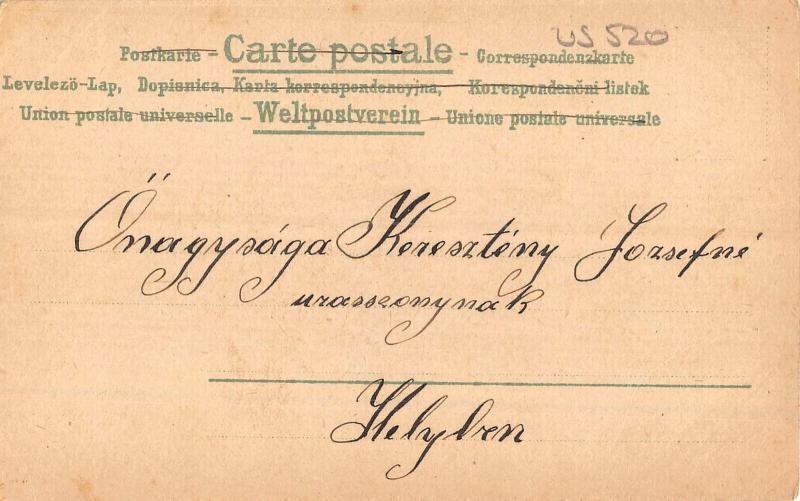 US 520
Postkarte - Carte postale - Correspondenzkarte
Levelező-Lap, Dopisnica, Karta korrespondencyjna, Korespondenčni listek
Union postale universelle - Weltpostverein - Unione postale universale
Őnagysága Keresztény Jozsefné
urasszonynak
Helyben